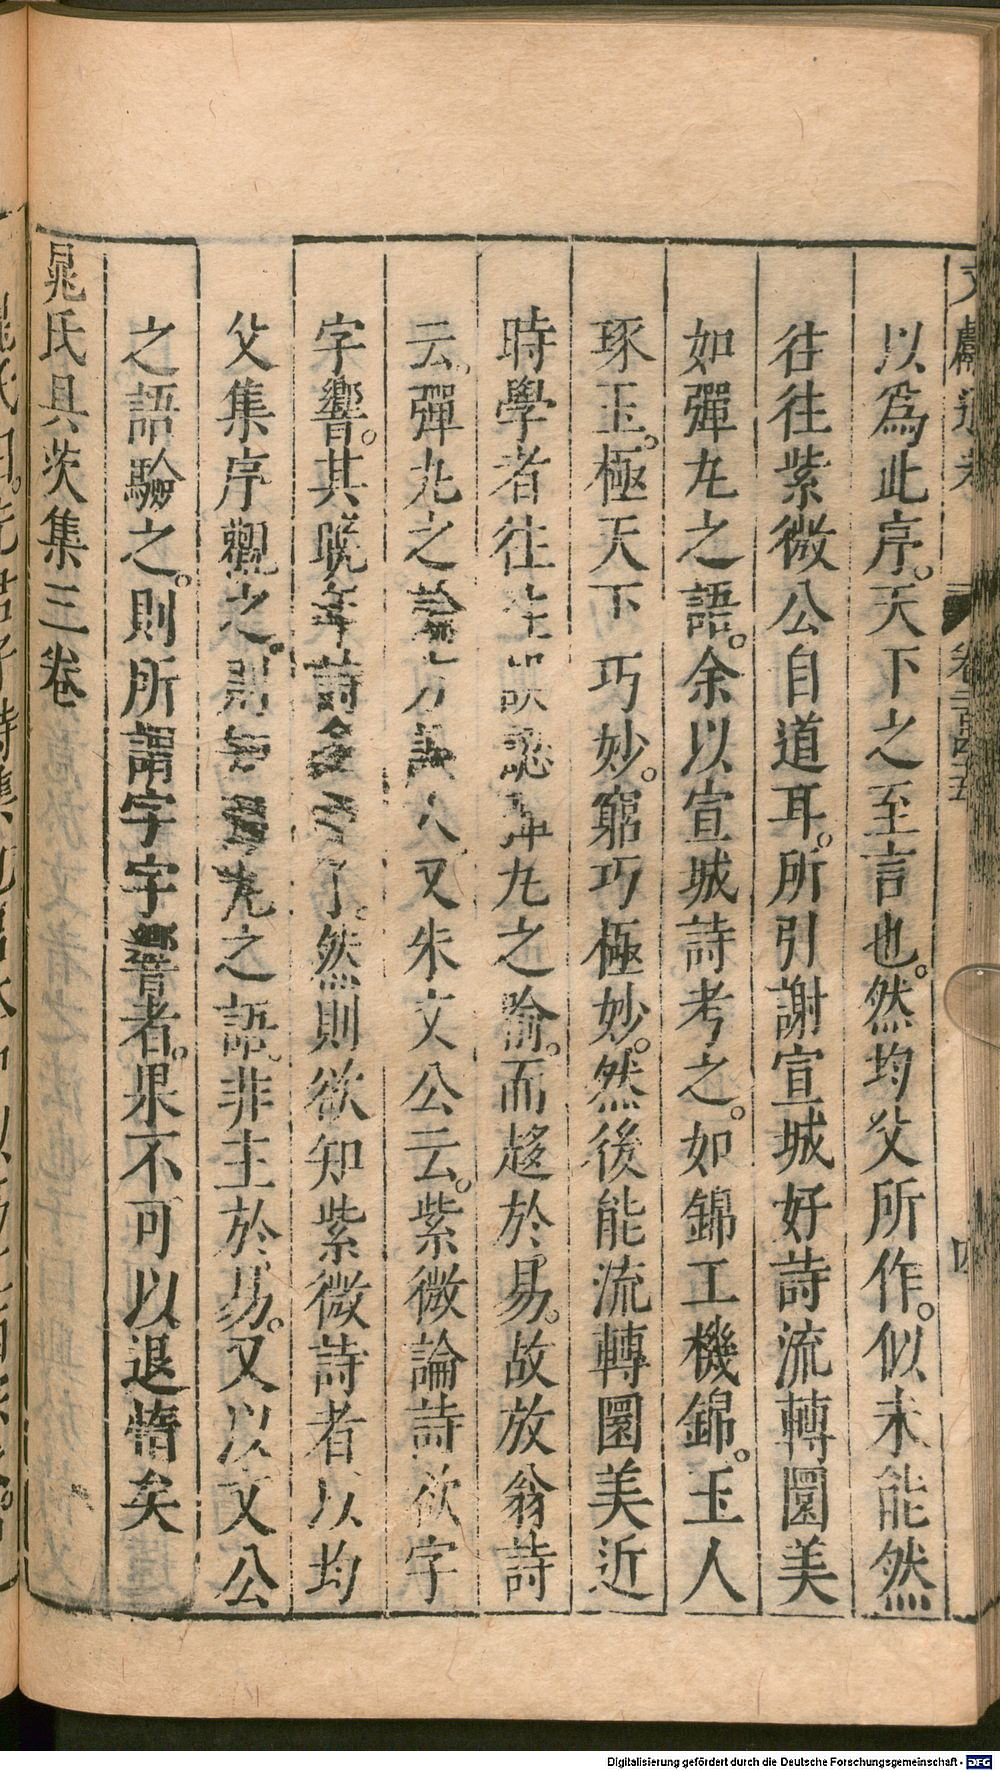 文獻通考 卷二百四十五 四
以爲此序。天下之至言也。然均父所作。似未能然
往往紫微公自道耳。所引謝宣城好詩流轉圜美
如彈丸之語。余以宣城詩考之。如錦工機錦。玉人
琢玉。極天下巧妙。窮巧極妙。然後能流轉圜美近
時學者往往誤認彈丸之喻。而趍於易。故放翁詩
云。彈丸之論方誤人又朱文公云。紫微論詩欲字
字響。其晚年詩多啞了。然則欲知紫微詩者以均
父集序觀之。則知彈丸之語。非主於易。又以文公
之語驗之。則所謂字字響者。果不可以退惰矣
晁氏具茨集三卷